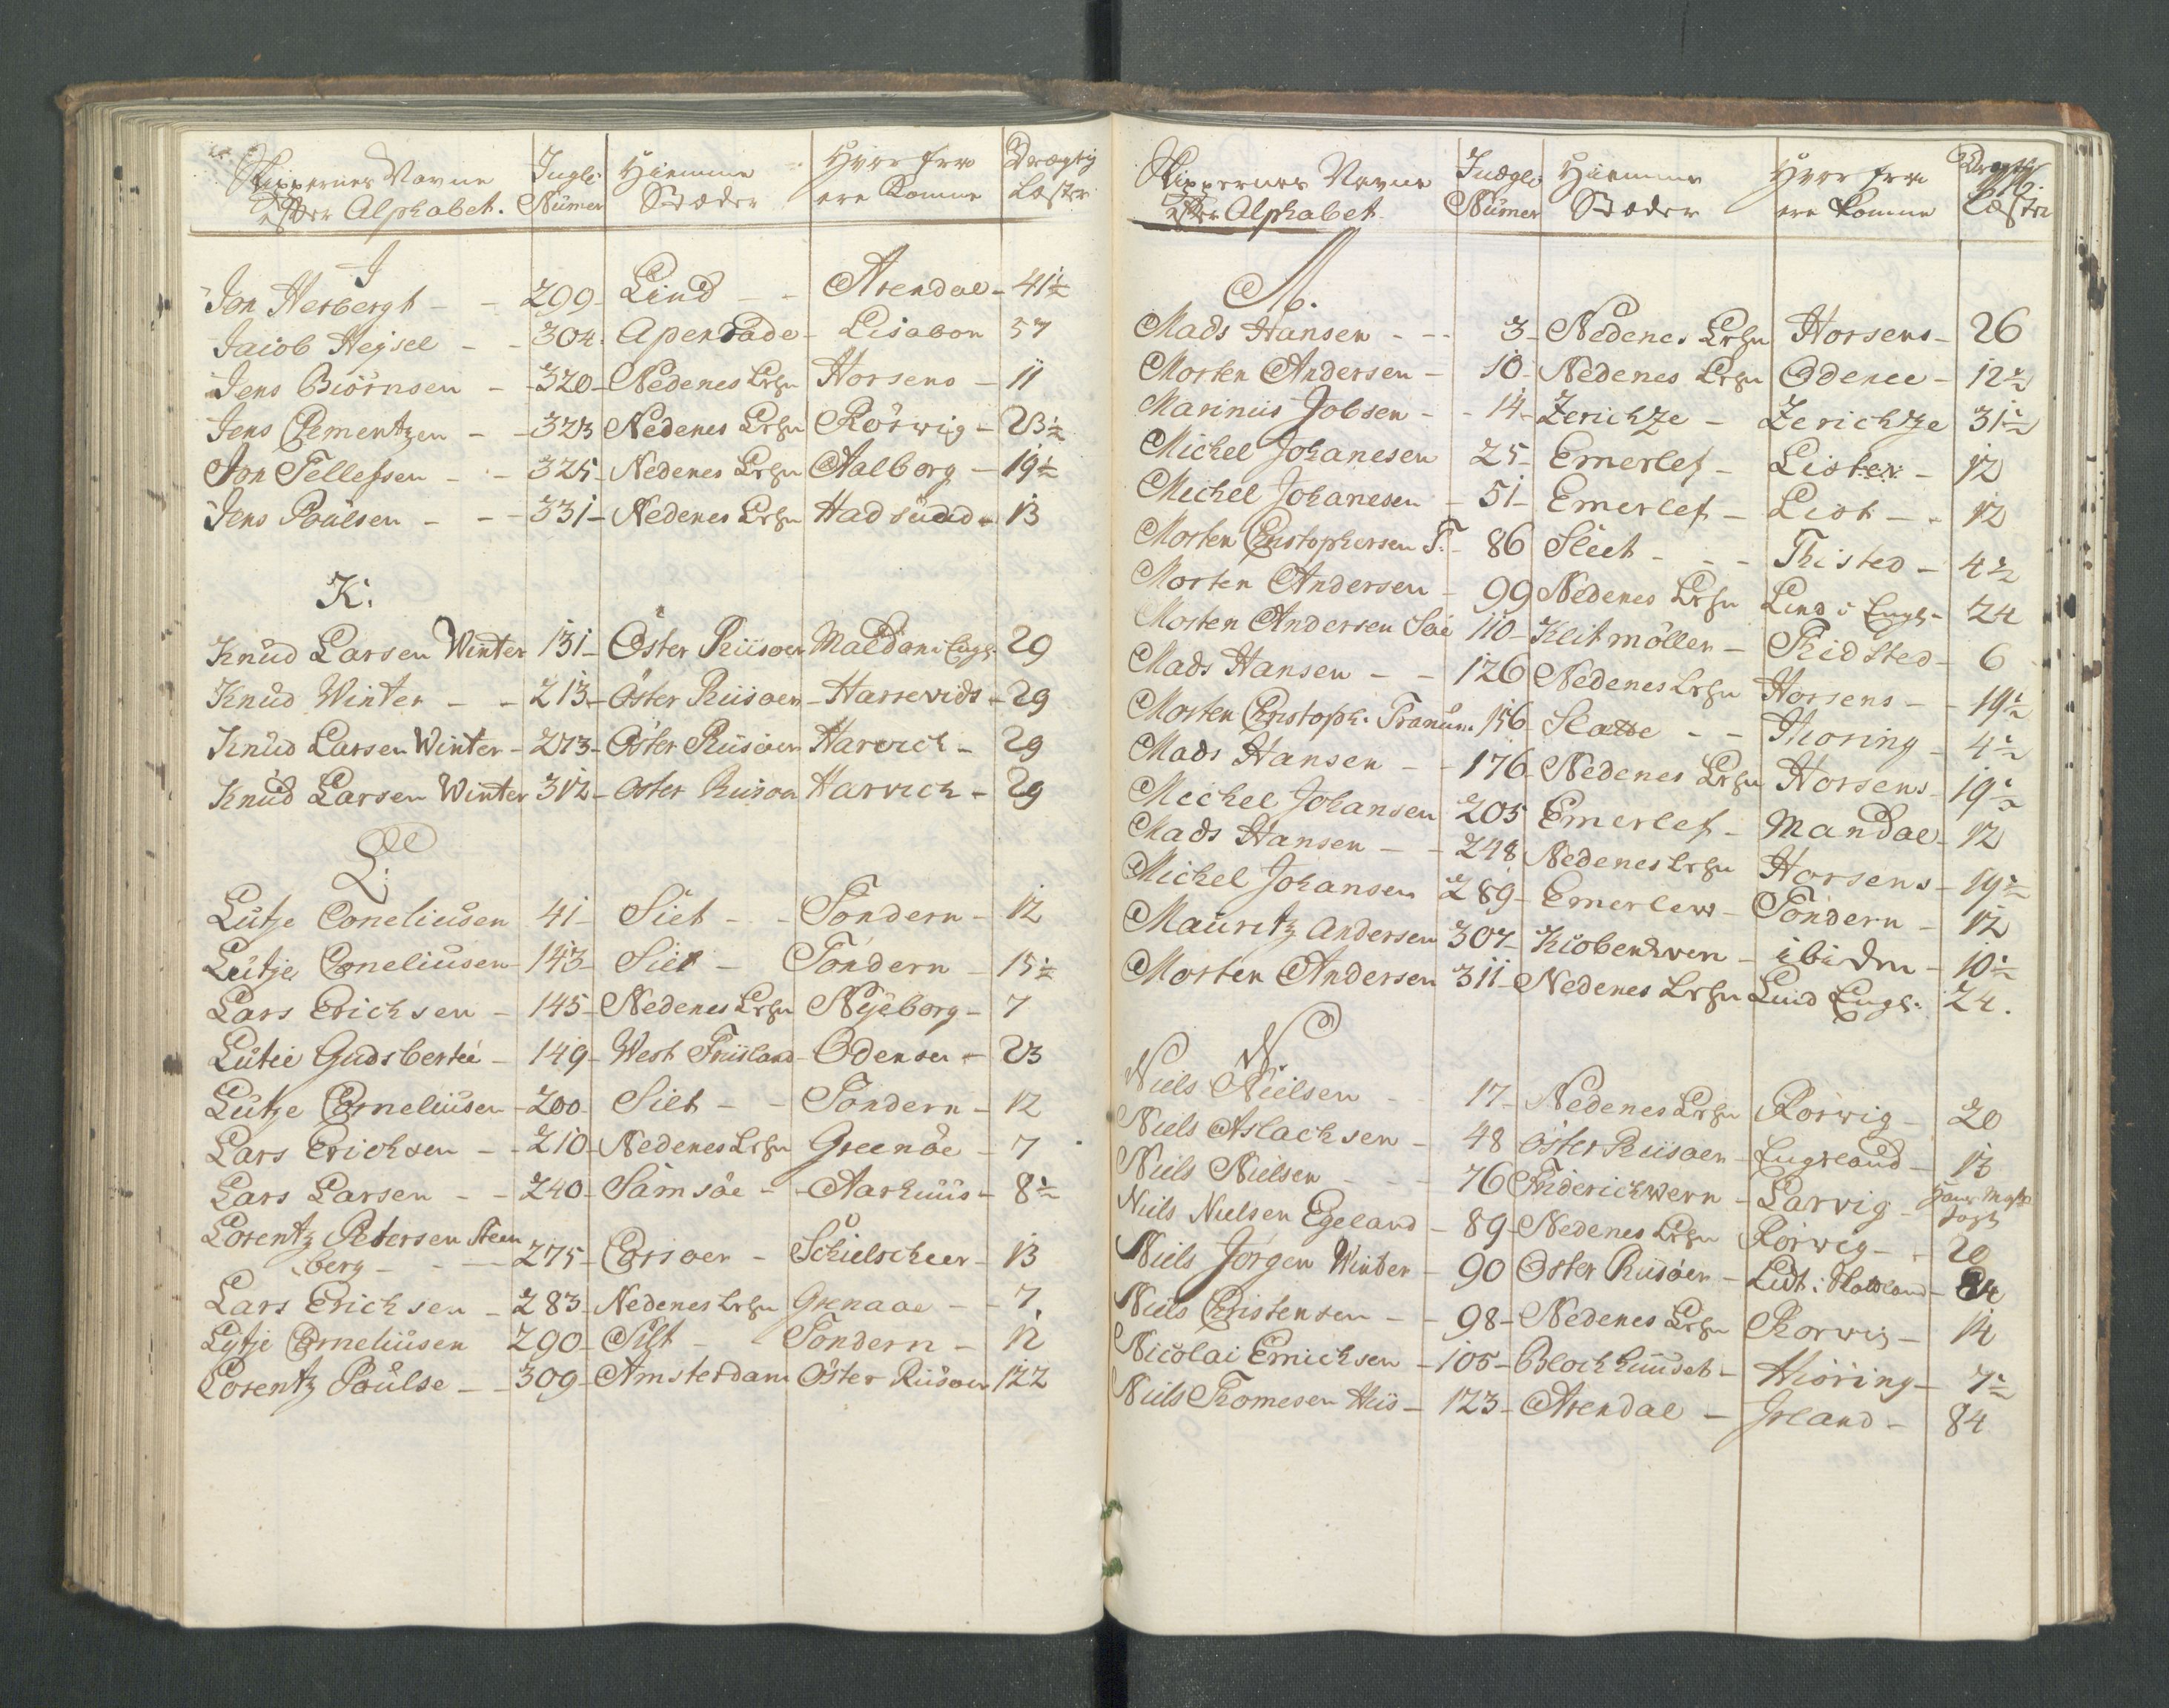 Skippernes Navne Jngl: Hiemme Hvor fra Drægtig
efter Alphabet. Numer Stæder ere komne Læster
J
Jon Herbergt - - 299 - Lind - - Arendal - 41½
Jacob Hejsel - - 304. Apenrade - Lisabon 57
Jens Biörnsen - - 320 - Nedenes Lehn Horsens - 11
Jens Clementzen - - 323 Nedenes Lehn Rörwig - 23½
Jon Tellefsen - - 325 - Nedenes Lehn Aalborg - 19½
Jens Poulsen - - - 331 - Nedenes Lehn Hadsund - 13
K.
Knud Larsen Winter 131 - Öster Riisoer Maldon i Engl. 29
Knud Winter - - 213 - Öster Riisoer - Harrevids - 29
Knud Larsen Winter - 273 - Öster Riisöer Harwich - 29
Knud Larsen Winter 312 - Öster Riisoer Harvich - 29
L:
Lutje Corneliusen 41 - Silt - - Tondern - 12
Lutje Corneliusen - 143 - Silt - Tondern - 15½
Lars Erichsen - 145 - Nedenes Lehn Nyeborg - 7
Lutie Gudsbertei - 149 - West Friisland - Odensee - 23
Lutje Corneliusen - 200 - Silt - - Tondern - 12
Lars Erichsen - - 210 - Nedenes Lehn Greenöe - 7
Lars Larsen - - 240 - Samsöe - - Aarhuus - 8½
Lorentz Petersen Steen
berg - - - 275 - Corsoer - Schielscheer - 13
Lars Erichsen - 283 - Nedenes Lehn Grenaae - - 7.
Lytje Corneliusen 290 - Silt - Tondern - 12
Lorentz Poulse - - 309 - Amsterdam Öster Riisoer 122
Skippernes Navne Jndgl: Hiemme Hvor fra Drægtig
efter Alphabet. Numer Stæder ere komne Læster
M.
Mads Hansen - - - 3 - Nedenes Lehn Horsens - 26
Morten Andersen - 10 - Nedenes Lehn Odence - 12½
Marinus Jobsen - - 14 - Zerichze - Zerichze 31½
Michel Johanesen 25 - Emerlef - Lister - 12
Michel Johanesen - 51 - Emerlef - List - - 12
Morten Christophersen T. - 86 Sleet - - - Thisted - 4½
Morten Andersen - 99 Nedenes Lehn Lind i Engl - 24
Morten Andersen Soe 110 - Klitmöller - Thidsted - 6
Mads Hansen - - 126 Nedenes Lehn Horsens - - 19½
Morten Christoph: Tranum. 156 - Slatte - - Thoring - 4½
Mads Hansen - - 176 - Nedenes Lehn Horsens - 19½
Michel Johansen 205 Emerlef - Mandal - 12
Mads Hansen - - 248 Nedenes Lehn Horsens - 19½
Michel Johansen 289 - Emerlew - Tondern - 12
Mauritz Andersen 307 - Kiobenhvn - ibidem - 10½
Morten Andersen 311 - Nedenes Lehn Lind Engl: 24.
N.
Niels Nielsen - - 17 - Nedenes Lehn Rorwig - 20
Niels Aslachsen - 48 Öster Riisoer - Engeland - 13
Niels Nielsen - - - 76 Friderichwern - Larvig -
Niels Nielsen Egeland - 89 - Nedenes Lehn Rorwig - - 20
Niels Jörgen Winter - 90 Öster Riisöer - 24
Niels Christensen - - 98 - Nedenes Lehn Rorwig - 14
Nicolai Emichsen - 105 - Blochhuuset - Hiöring - 7½
Niels Thomesen Hiis - 123 - Arendal - Jrland - 84